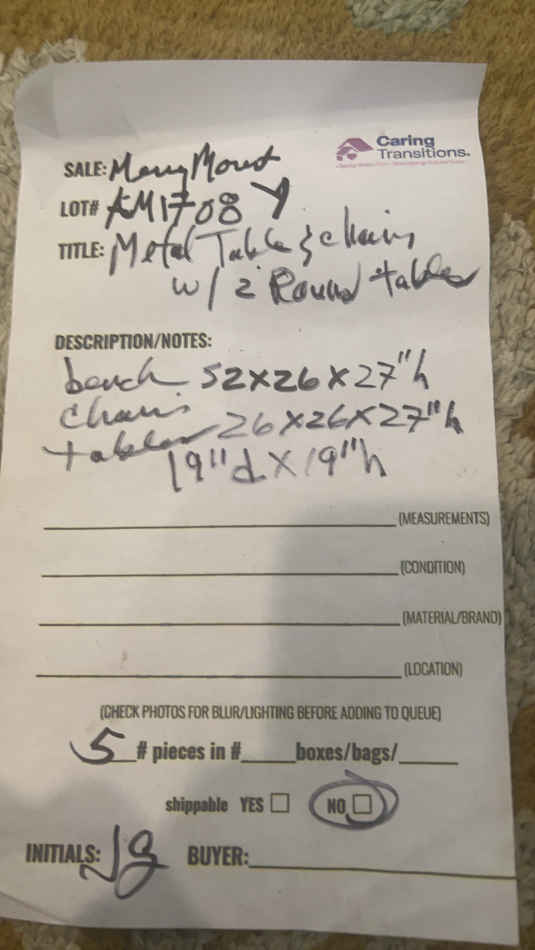 Caring
Transitions.
SALE: Merry Mount
LOT# KM1708 Y
TITLE: Metal Table & chairs
w/ 2 Round tables
DESCRIPTION/NOTES:
bench 52x26x27"h
chairs 26x26x27"h
tables 19"d x 19"h
(MEASUREMENTS)
(CONDITION)
(MATERIAL/BRAND)
(LOCATION)
(CHECK PHOTOS FOR BLUR/LIGHTING BEFORE ADDING TO QUEUE)
5 # pieces in #____boxes/bags/____
shippable YES NO
INITIALS: JG BUYER: